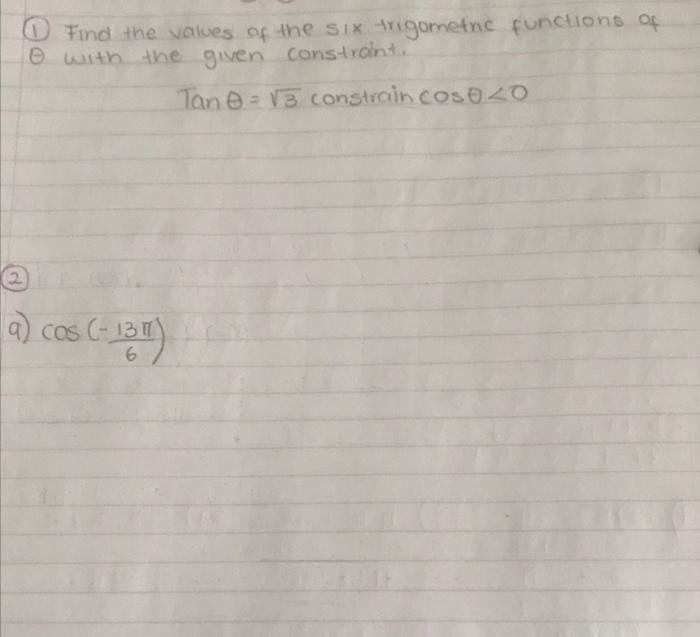 ① Find the values of the six trigometric functions of
θ with the given constraint.
Tan θ = √3 constrain cosθ<0
②
a) cos (-13π/6)